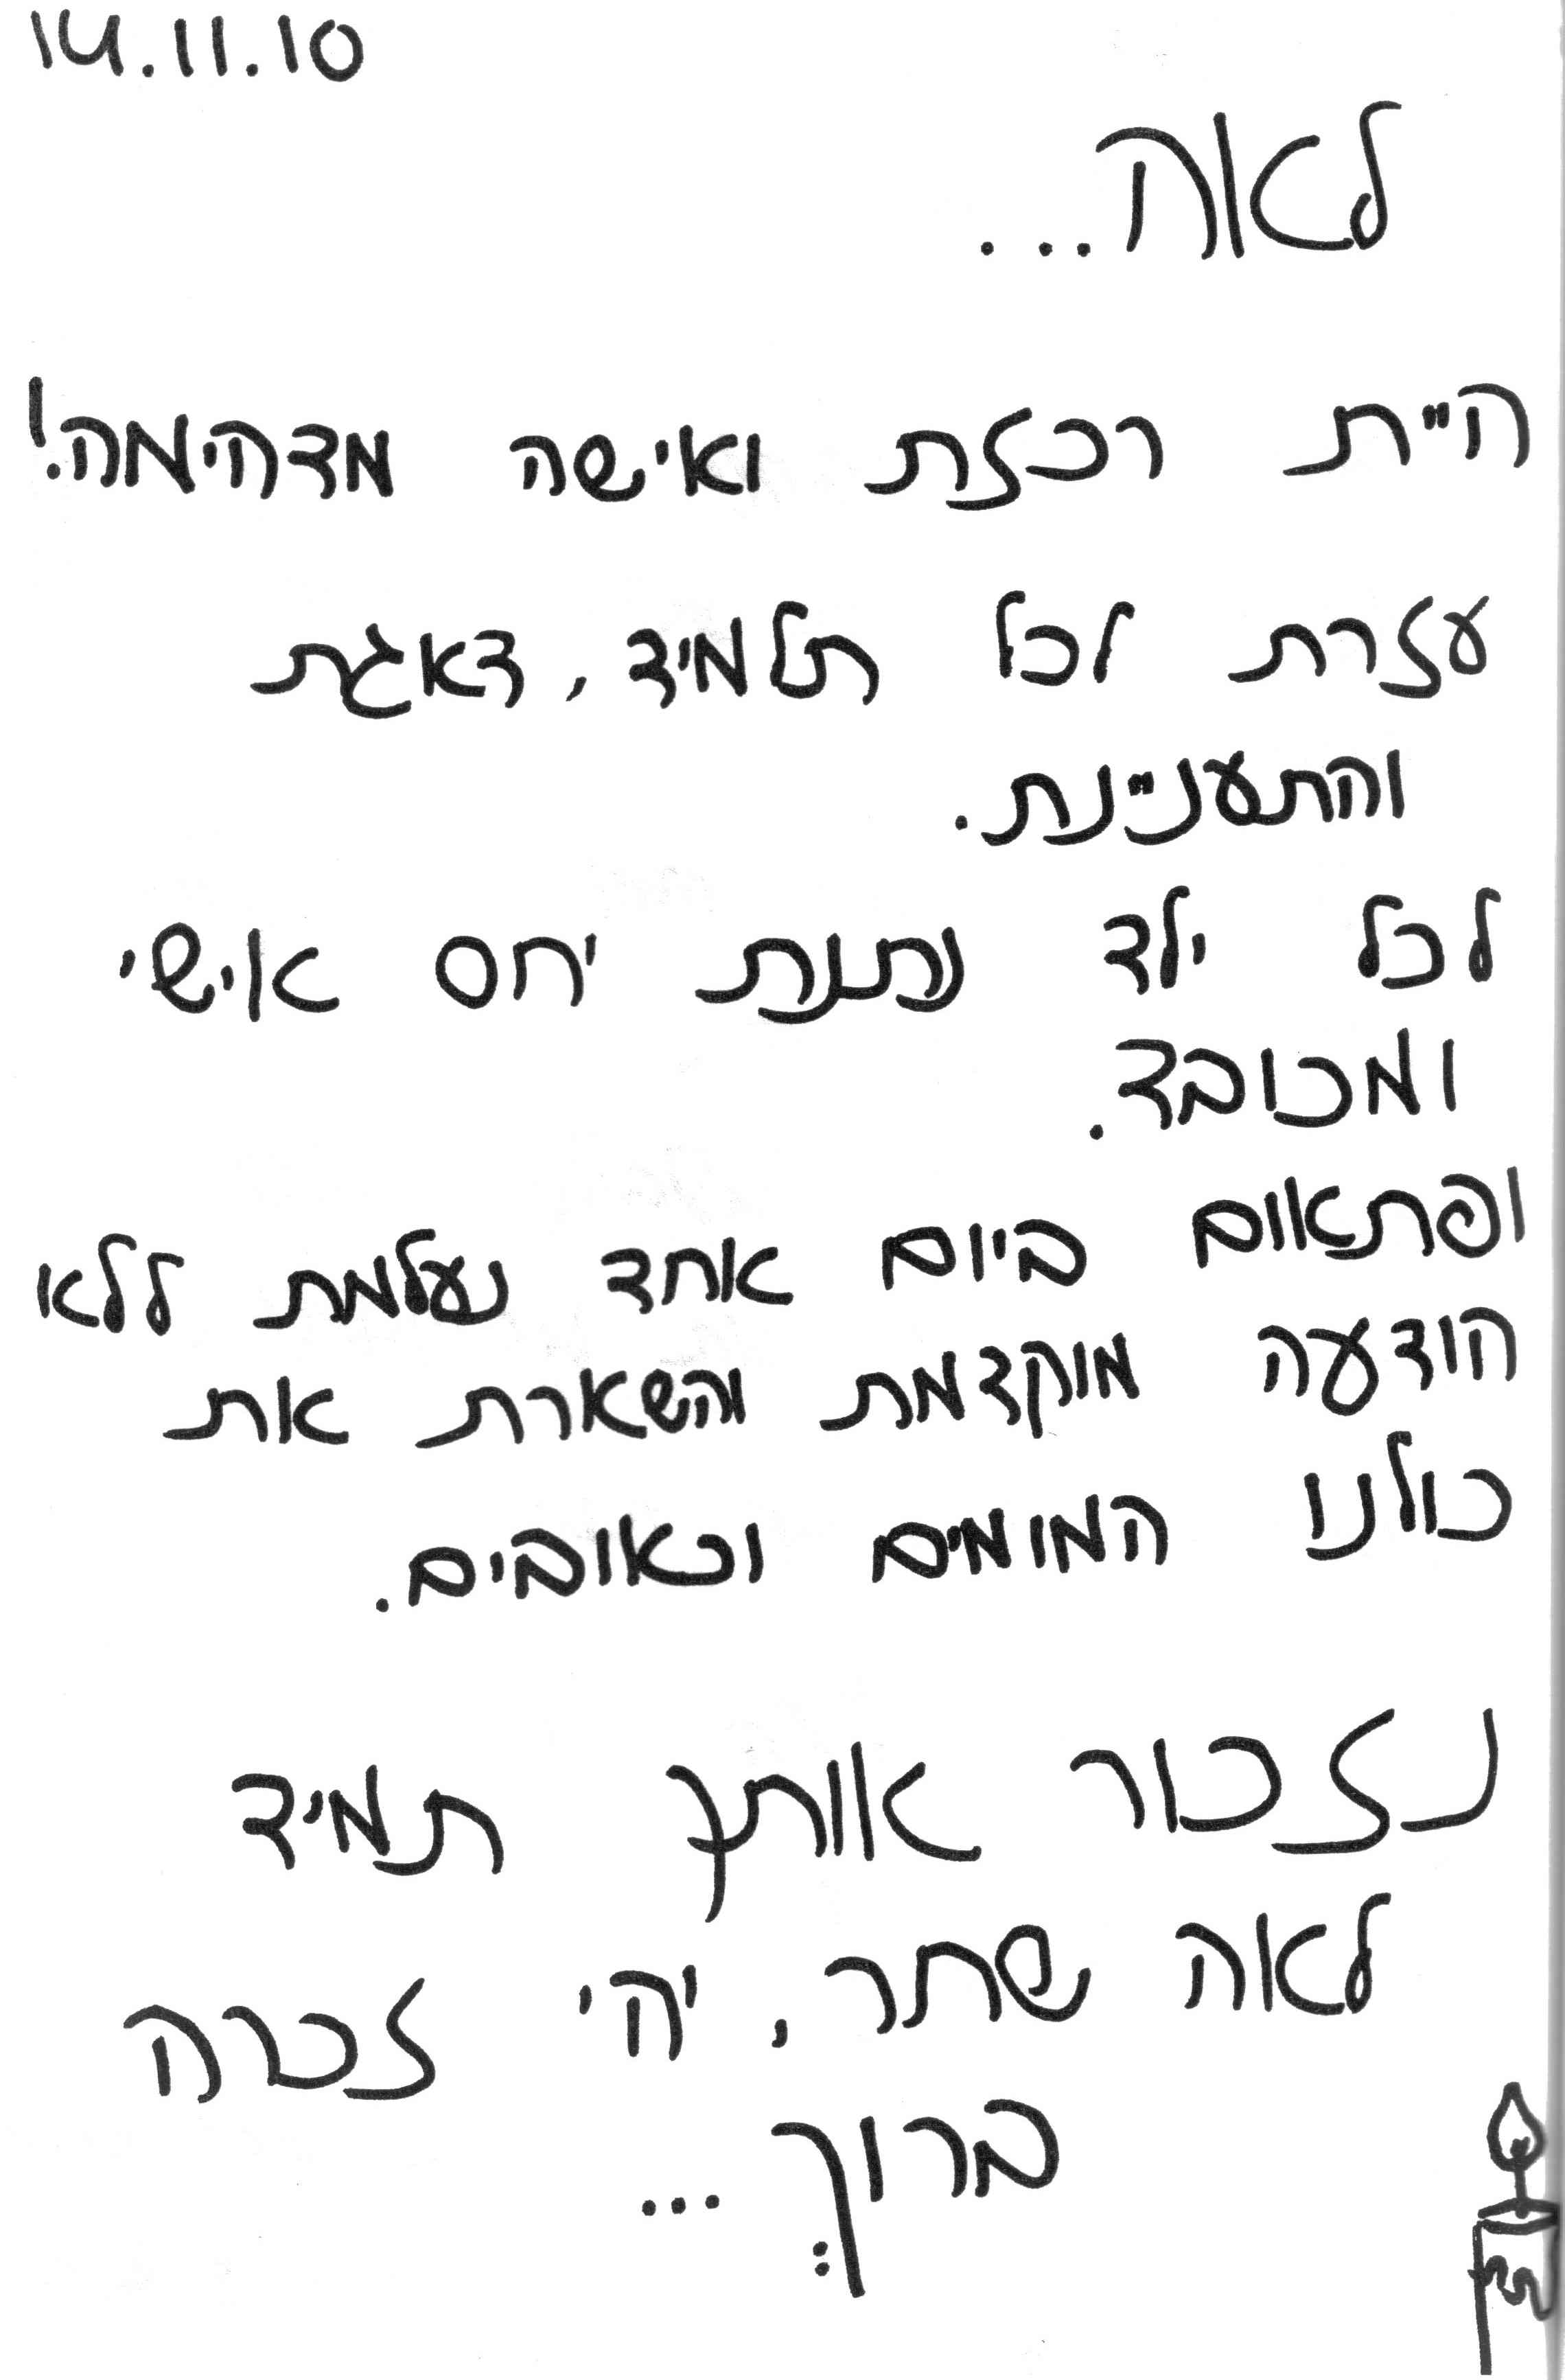 14.11.10
לאה...
היית רכזת ואישה מדהימה!
עזרת לכל תלמיד, דאגת
והתעניינת.
לכל ילד נתנת יחס אישי
ומכובד.
ופתאום ביום אחד נעלמת ללא
הודעה מוקדמת והשארת את
כולנו המומים וכאובים.
נזכור אותך תמיד
לאה שתר, יהי זכרה
ברוך...